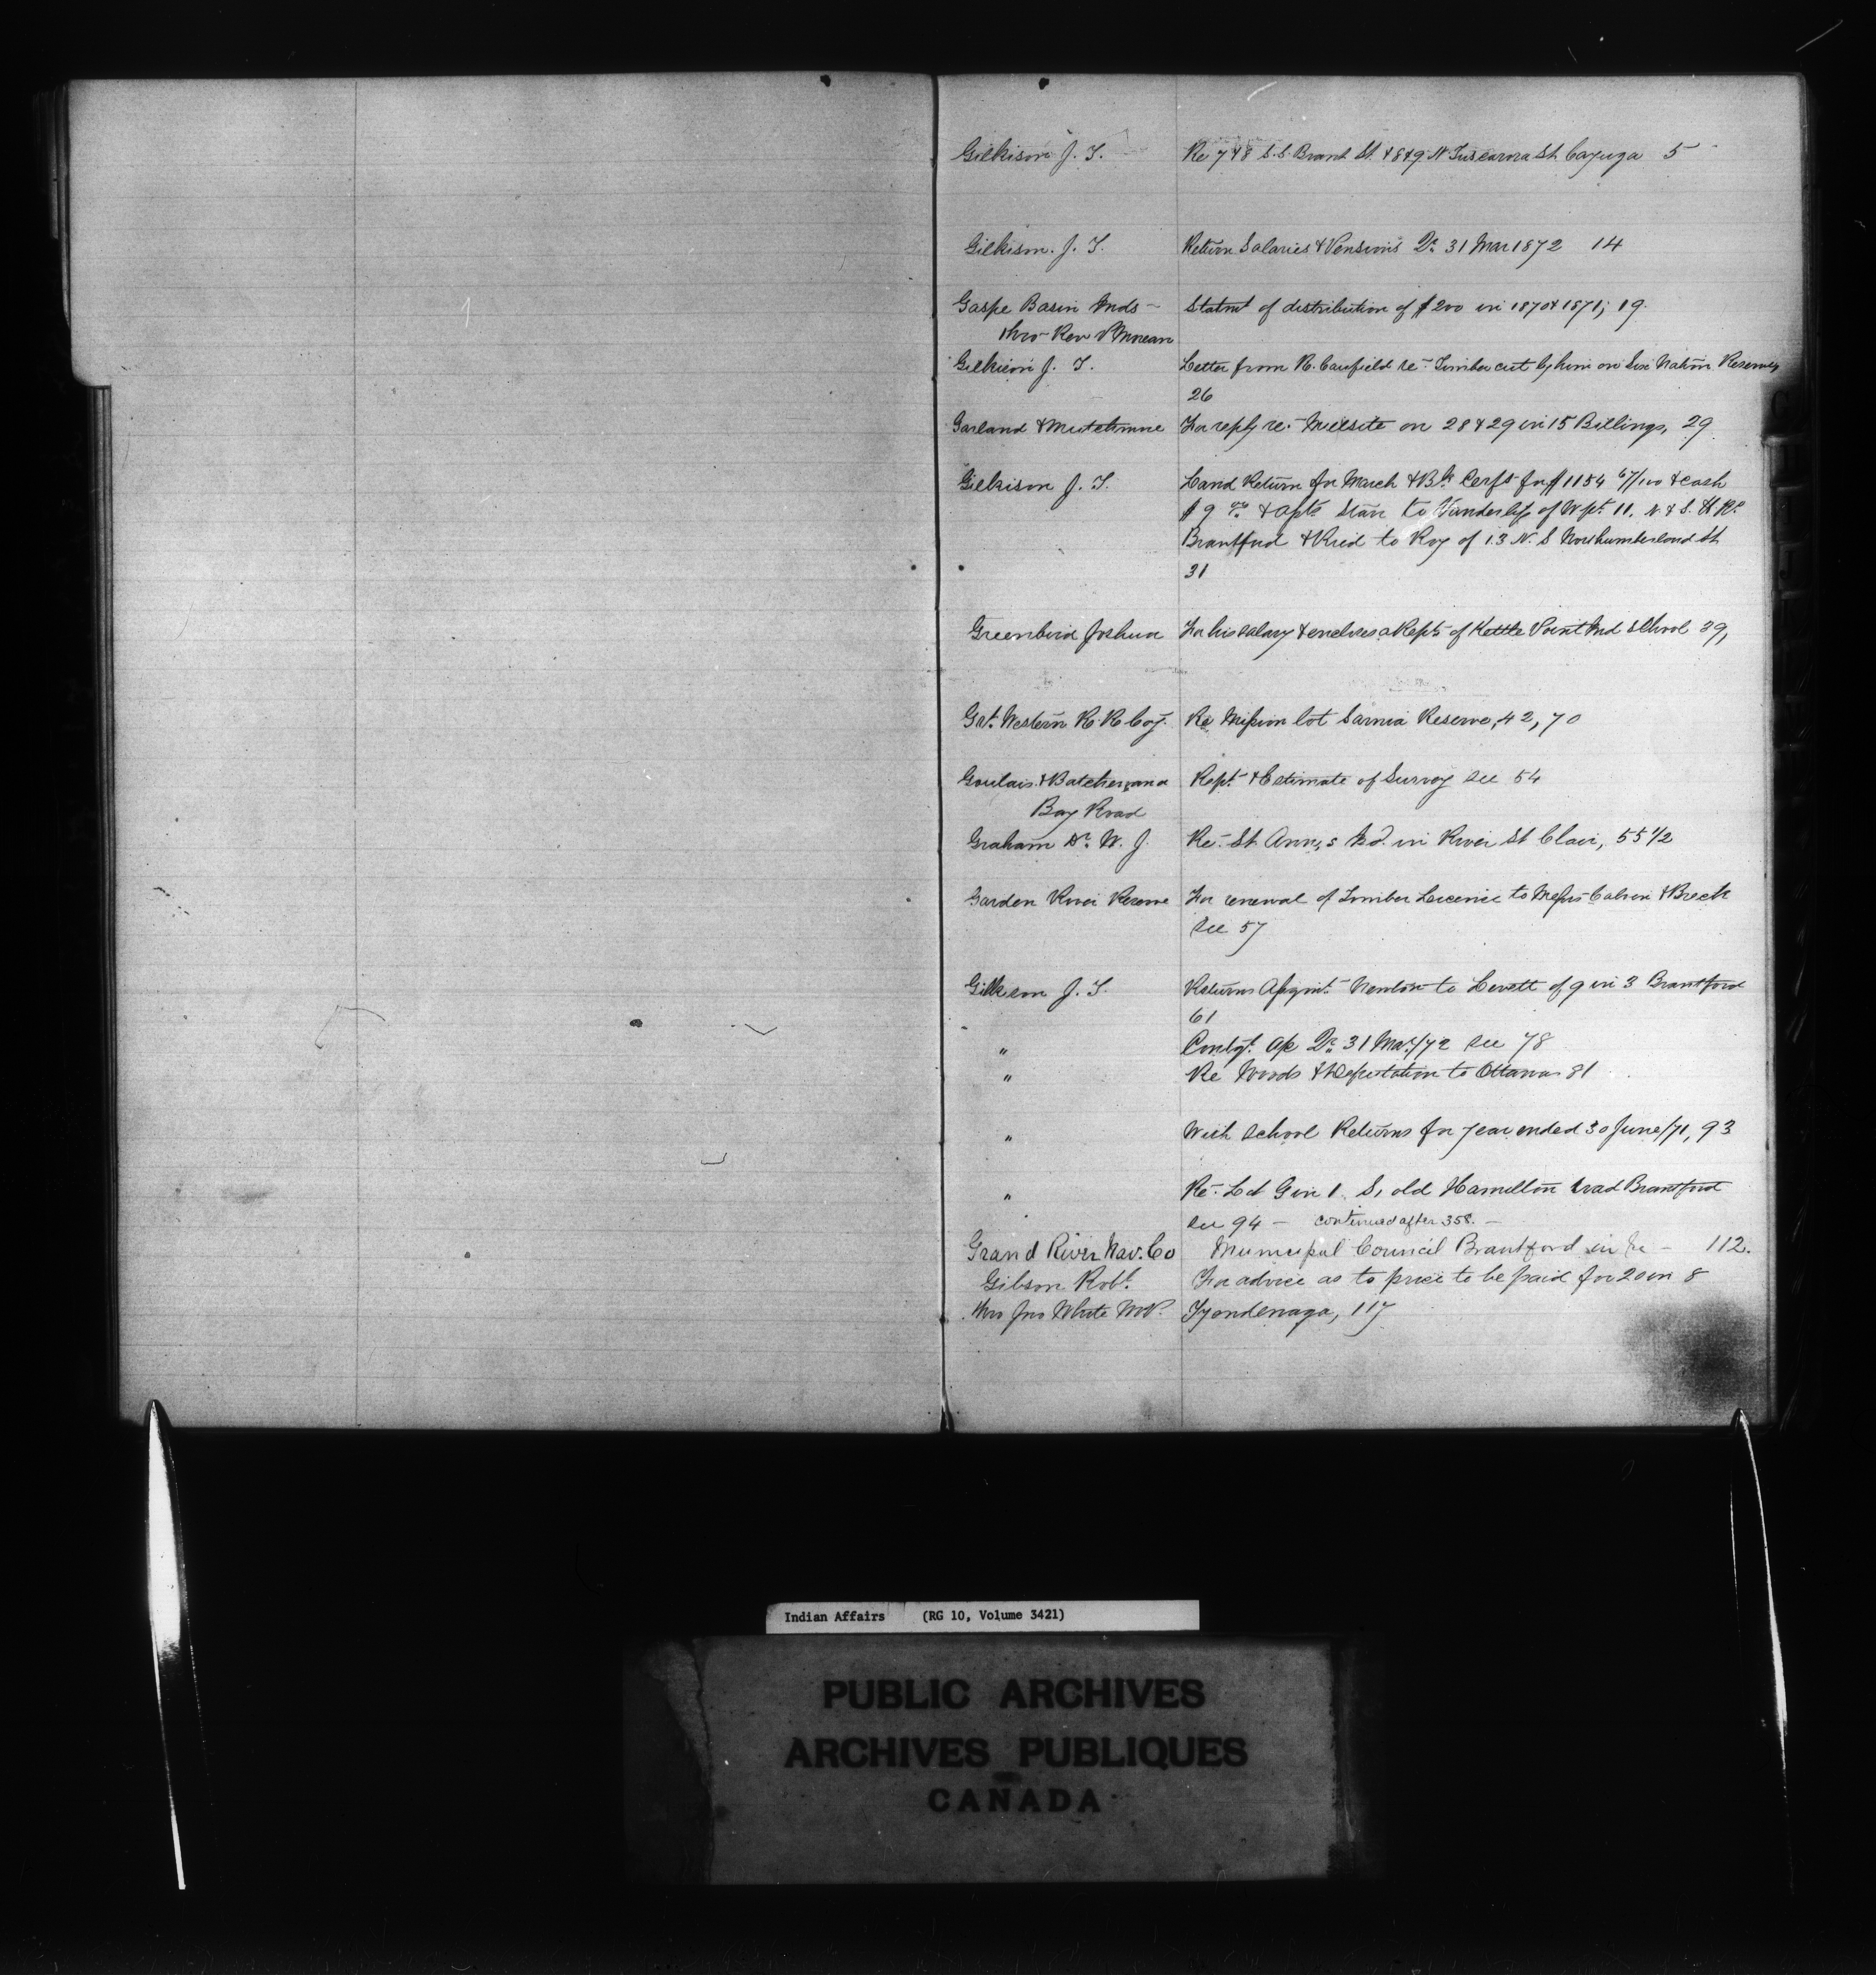 Gilkison J. T. Re 7 & 8 S.S. Brant St. & 8 & 9 N Tuscarora St Cayuga 5
Gilkison. J. T. Return Salaries & Pensions Qr. 31 Mar 1872 14
Gaspe Basin Inds – Statmt of distribution of $200 in 1870 & 1871, 19.
thro Rev
Gilkison J. T. Letter from R. Canfield re- Timber cut by him on Six Nation Reserve,
26
Garland & Mutchmore For reply re. Millsite on 28 & 29 in 15 Billings, 29
Gilkison J. T. Land Return for March & Bk Certft for $1154 67/100 & cash
$9 & to Vanderlip of Wpt. 11. N & S. H Rd
Brantford & Reid to Roy of 13 N. S Northumberland St
31
Greenbird Joshua For his salary & encloses Rept of Kettle Point Ind School 39,
Grt. Western R. R Coy. Re Mission lot Sarnia Reserve, 42, 70
Goulais & Batchewana Rept & Estimate of Survey see 54
Bay Road
Graham Dr. W. J. Re. St Anns Isd. in River St Clair, 55 1/2
Garden River Reserve For renewal of Timber Licence to Messrs Calvin & Breck
see 57
Gilkison J. T. Returns Assgnmt. Newton to Levett of 9 in 3 Brantford
61
" Contgt. a/c Qr. 31 Mar/72 see 78
" Re Woods & Deputation to Ottawa 81
" With School Returns for year ended 30 June/71, 93
" Re. Lot G in 1 S, old Hamilton road Brantford
see 94 – continued after 358. –
Grand River Nav. Co Municipal Council Brantford in re – 112.
Gibson Robt. For advice as to price to be paid for 20 in 8
thro Jno White M.P. Tyendenaga, 117
Indian Affairs (RG 10, Volume 3421)
PUBLIC ARCHIVES
ARCHIVES PUBLIQUES
CANADA